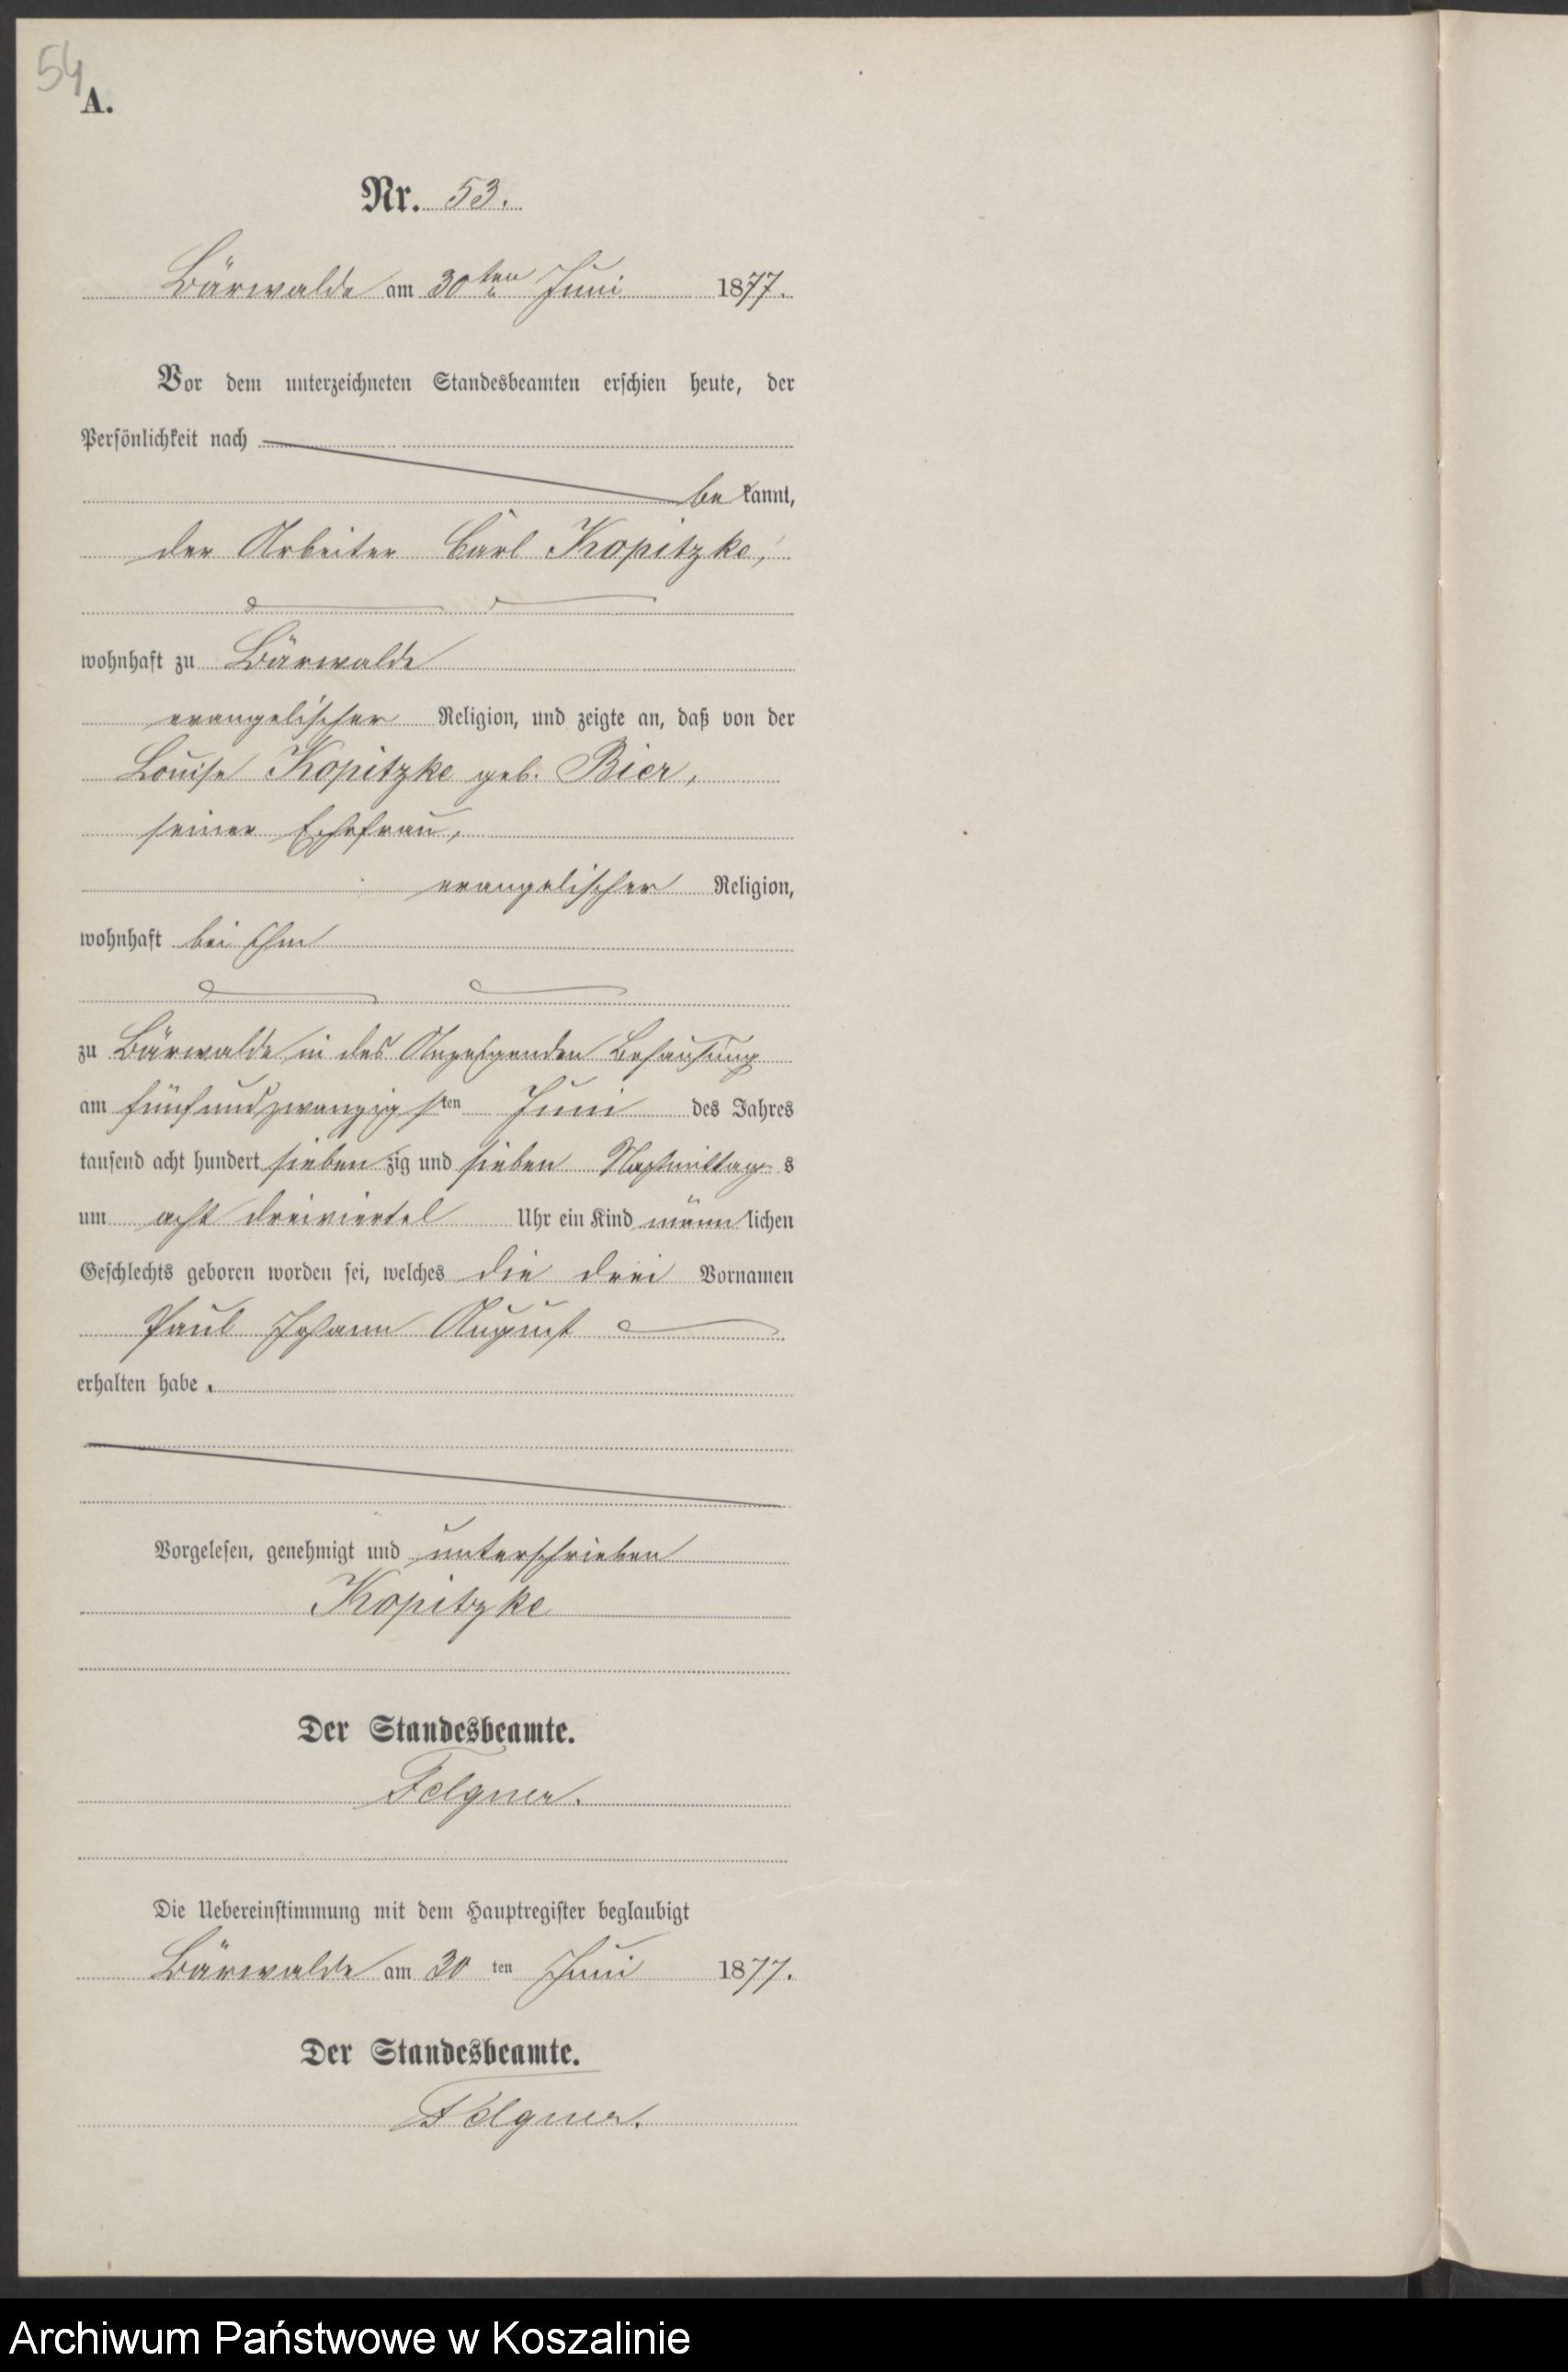 54
A.
Nr. 53.
Bärwalde am 30ten Juni 1877.
Vor dem unterzeichneten Standesbeamten erschien heute, der
Persönlichkeit nach
be kannt,
der Arbeiter Carl Kopitzke,
wohnhaft zu Bärwalde
evangelischer Religion, und zeigte an, daß von der
Louise Kopitzke geb. Bier,
seiner Ehefrau,
evangelischer Religion,
wohnhaft bei ihm
zu Bärwalde in des Anzeigenden Behausung
am fünfundzwanzigsten Juni des Jahres
tausend acht hundert siebenzig und sieben Nachmittags
um acht dreiviertel Uhr ein Kind männlichen
Geschlechts geboren worden sei, welches die drei Vornamen
Paul Johann August
erhalten habe.
Vorgelesen, genehmigt und unterschrieben
Kopitzke
Der Standesbeamte.
Felgner.
Die Uebereinstimmung mit dem Hauptregister beglaubigt
Bärwalde am 30 ten Juni 1877.
Der Standesbeamte.
Felgner.
Archiwum Państwowe w Koszalinie